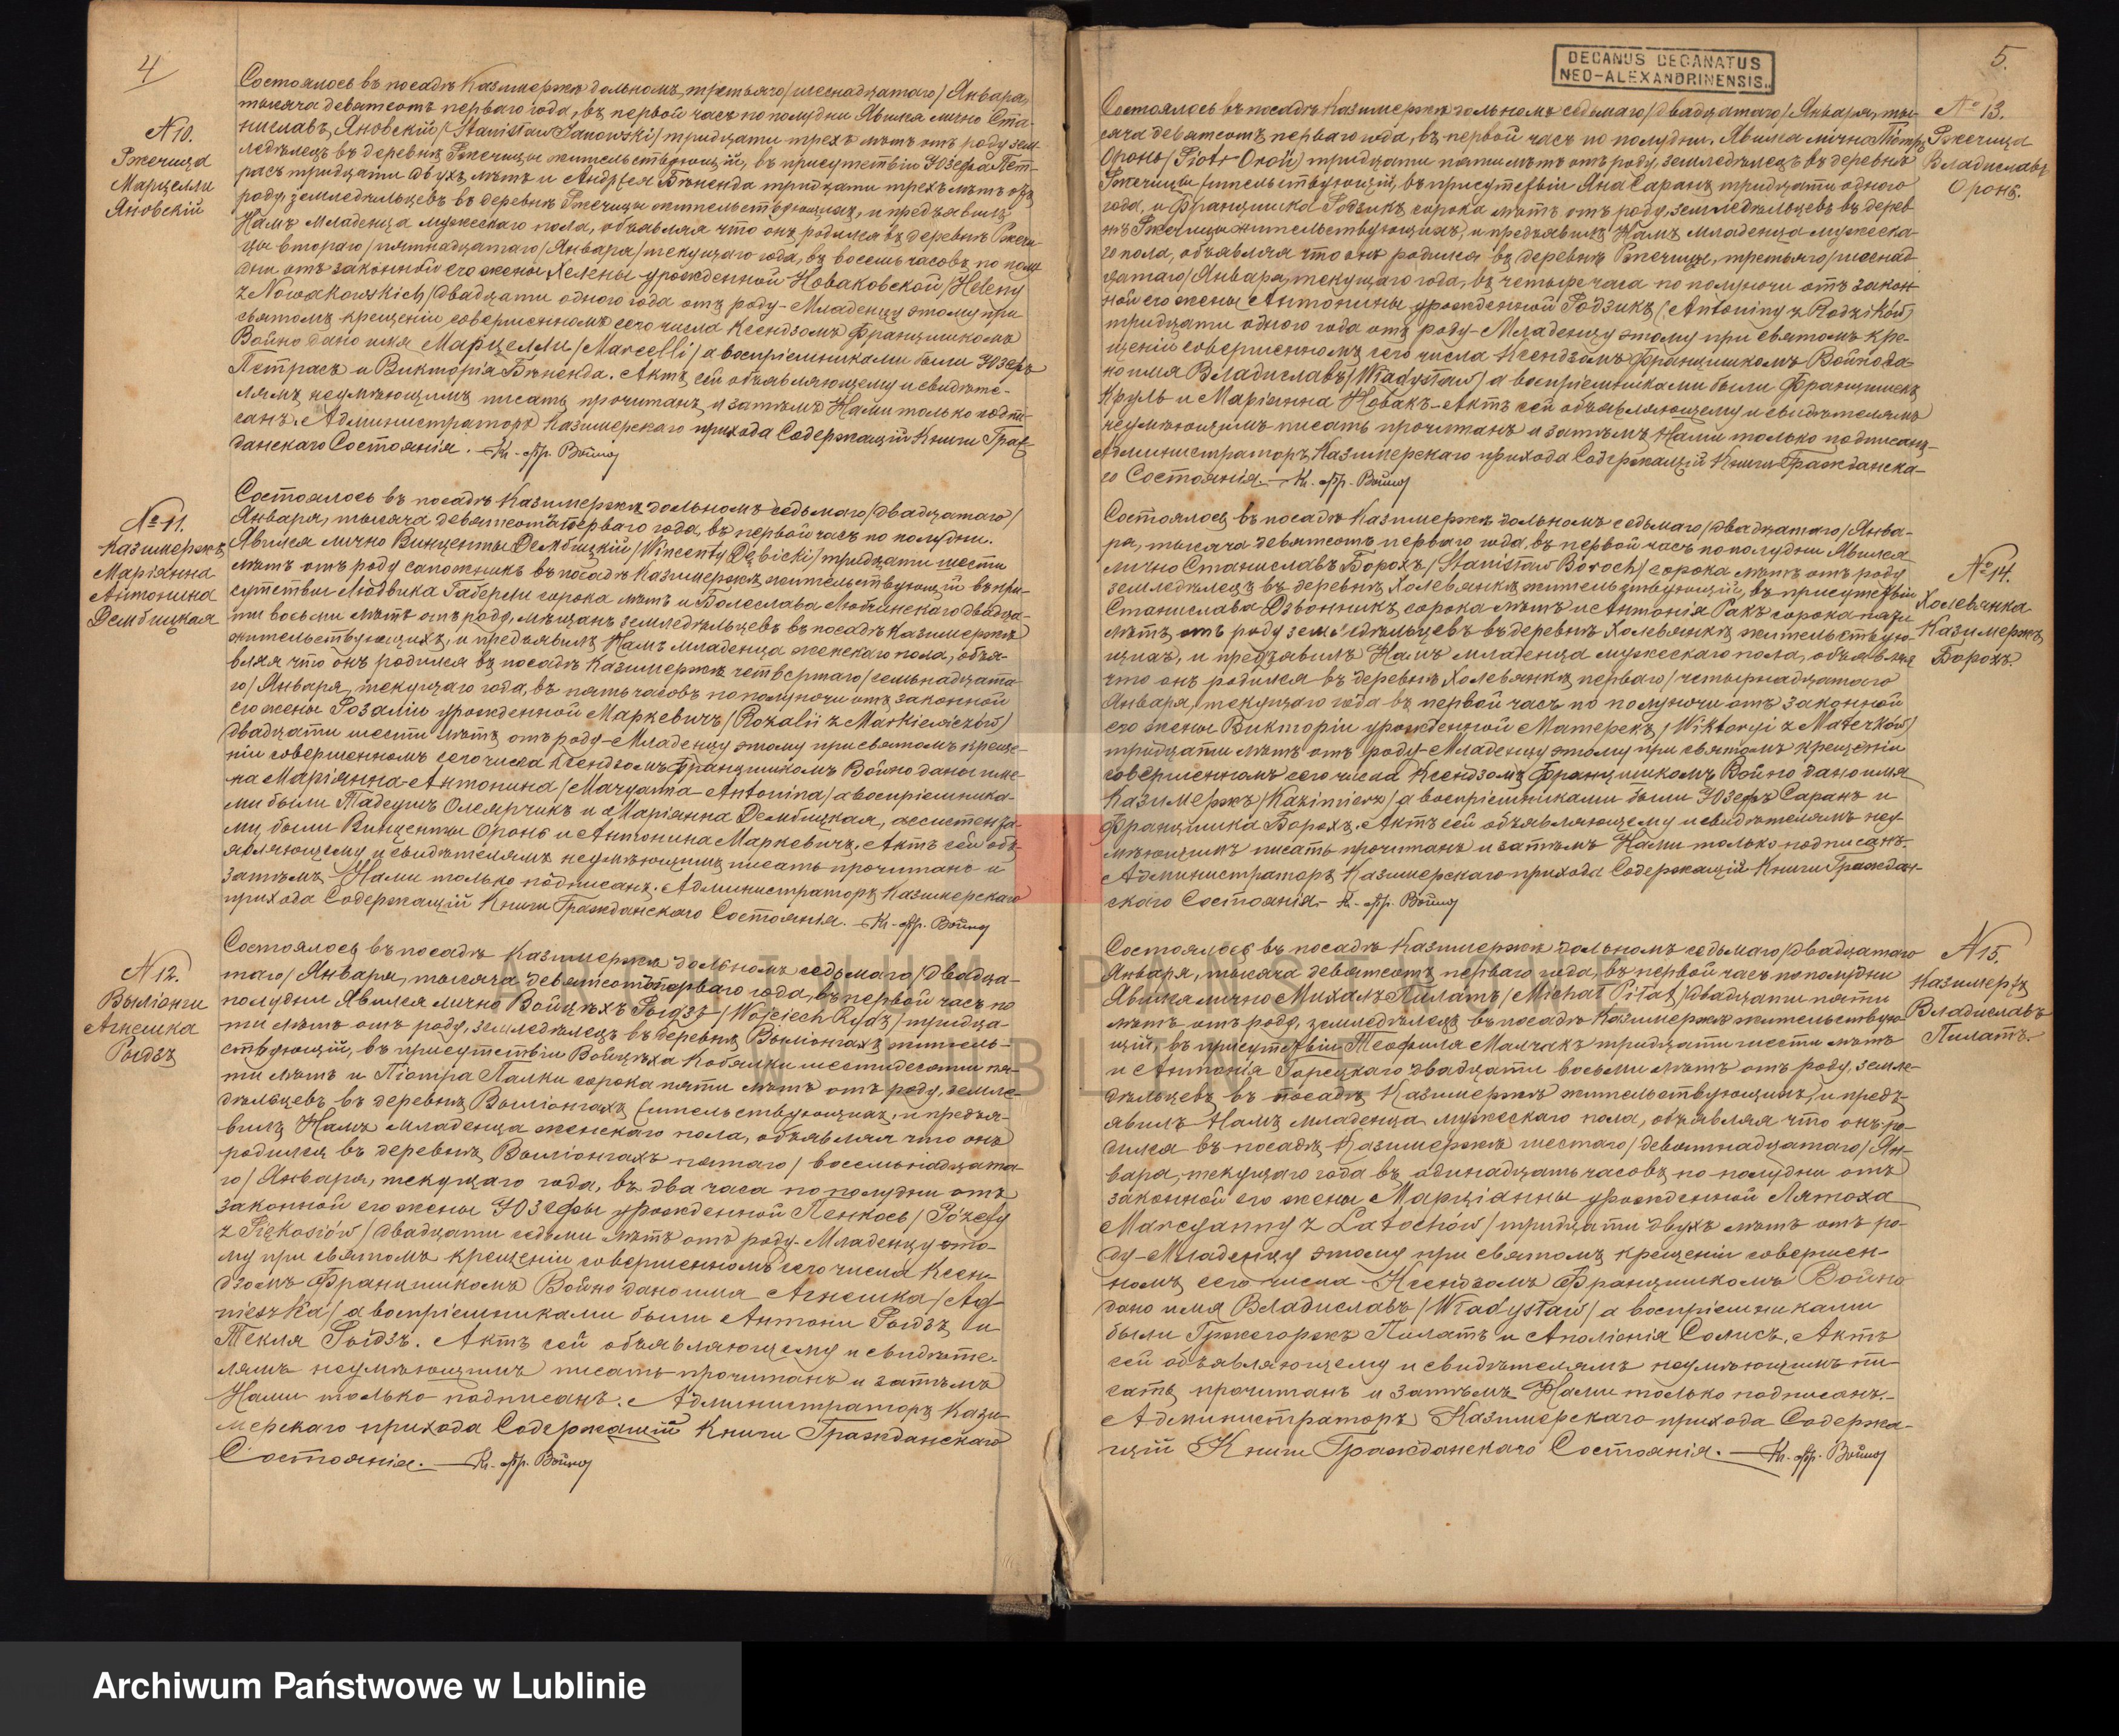 4
№ 10.
Ржечица
Марцелли
Яновскій
Состоялось въ посадѣ Казимержѣ дольномъ, третьяго /шеснадцатаго/ Января,
тысяча девятсотъ перваго года, въ первой часъ по полудни. Явился лично Ста-
ниславъ Яновскій /Stanisław Janowski/ тридцати трехъ лѣтъ отъ роду зем-
ледѣлецъ въ деревнѣ Ржечицы жительствующій, въ присутствіи Юзефа Пет-
расъ тридцати двухъ лѣтъ и Андрея Бѣненда тридцати трехъ лѣтъ отъ
роду, земледѣльцевъ въ деревнѣ Ржечицы жительствующихъ, и предъявилъ
Намъ младенца мужескаго пола, объявляя что онъ родился въ деревнѣ Ржечи-
цы втораго /пятнадцатаго/ Января /текущаго года, въ восемь часовъ по полу-
дни отъ законной его жены Хелены урожденной Новаковской /Heleny
z Nowakowskich/ двадцати одного года отъ роду - Младенцу этому при
святомъ крещеніи совершенномъ сего числа Ксендзомъ Францишкомъ
Войно дано имя Марцелли /Marcelli/ а воспріемниками были Юзефъ
Петрасъ и Викторія Бѣненда. Актъ сей объявляющему и свидѣте-
лямъ неумѣющимъ писать прочитанъ и затѣмъ Нами только подпи-
санъ. Администраторъ Казимерскаго прихода Содержащій Книги Граж-
данскаго Состоянія. — Кс. Фр. Войно
№ 11.
Казимержъ
Маріанна
Антонина
Дембицкая
Состоялось въ посадѣ Казимержѣ дольномъ седьмаго /двадцатаго/
Января, тысяча девятсотъ перваго года, въ первой часъ по полудни.
Явился лично Винценты Дембицкій /Wincenty Dębicki/ тридцати шести
лѣтъ отъ роду сапожникъ въ посадѣ Казимержѣ жительствующій въ при-
сутствіи Людвика Габерли сорока лѣтъ и Болеслава Любинскаго двадца-
ти восьми лѣтъ отъ роду, мѣщанъ земледѣльцевъ въ посадѣ Казимержѣ
жительствующихъ, и предъявилъ Намъ младенца женскаго пола, объя-
вляя что онъ родился въ посадѣ Казимержѣ четвертаго /семьнадцата-
го/ Января, текущаго года, въ пять часовъ по полуночи отъ законной
его жены Розаліи урожденной Маркевичъ /Rozalii z Markiewiczów/
двадцати шести лѣтъ отъ роду - Младенцу этому при святомъ креще-
ніи совершенномъ сего числа Ксендзомъ Францишкомъ Войно даны име-
на Маріанна - Антонина /Maryanna - Antonina/ а воспріемника-
ми были Тадеушъ Олеярчикъ и Маріанна Дембицкая, ассистента-
ми были Винценты Оронь и Антонина Маркевичъ. Актъ сей объ-
являющему и свидѣтелямъ неумѣющимъ писать прочитанъ и
затѣмъ Нами только подписанъ. Администраторъ Казимерскаго
прихода Содержащій Книги Гражданскаго Состоянія. — Кс. Фр. Войно
№ 12.
Выліонги
Агнешка
Рыдзъ
Состоялось въ посадѣ Казимержѣ дольномъ седьмаго /двадца-
таго/ Января, тысяча девятсотъ перваго года, въ первой часъ по
полудни Явился лично Войцѣхъ Рыдзъ /Wojciech Rydz/ тридца-
ти лѣтъ отъ роду, земледѣлецъ въ деревнѣ Выліонгахъ житель-
ствующій, въ присутствіи Войцѣха Кобялки шестидесяти пя-
ти лѣтъ и Піотра Палки сорока пяти лѣтъ отъ роду, земле-
дѣльцевъ въ деревнѣ Выліонгахъ жительствующихъ, и предъя-
вилъ Намъ младенца женскаго пола, объявляя что онъ
родился въ деревнѣ Выліонгахъ пятаго /восемьнадцата-
го/ Января, текущаго года, въ два часа по полудни отъ
законной его жены Юзефы урожденной Пенкось /Józefy
z Piękosiów/ двадцати седьми лѣтъ отъ роду. Младенцу это-
му при святомъ крещеніи совершенномъ сего числа Ксен-
дзомъ Францишкомъ Войно дано имя Агнешка /Ag-
nieszka/ а воспріемниками были Антони Рыдзъ и
Текля Рыдзъ. Актъ сей объявляющему и свидѣте-
лямъ неумѣющимъ писать прочитанъ и затѣмъ
Нами только подписанъ. Администраторъ Кази-
мерскаго прихода Содержащій Книги Гражданскаго
Состоянія. — Кс. Фр. Войно
DECANUS DECANATUS
NEO-ALEXANDRINENSIS.
5.
№ 13.
Ржечица
Владиславъ
Оронь.
Состоялось въ посадѣ Казимержѣ дольномъ седьмаго /двадцатаго/ Января, ты-
сяча девятсотъ перваго года, въ первой часъ по полудни. Явился лично Піотръ
Оронь /Piotr Oroń/ тридцати пяти лѣтъ отъ роду, земледѣлецъ въ деревнѣ
Ржечицы жительствующій, въ присутствіи Яна Саранъ тридцати одного
года, и Францишка Родзикъ сорока лѣтъ отъ роду, земледѣльцевъ въ дерев-
нѣ Ржечицы жительствующихъ, и предъявилъ Намъ младенца мужеска-
го пола, объявляя что онъ родился въ деревнѣ Ржечицы, третьяго /шеснад-
цатаго/ Января, текущаго года, въ четыре часа по полуночи отъ закон-
ной его жены Антонины урожденной Родзикъ (Antoniny z Rodzików)
тридцати одного года отъ роду - Младенцу этому при святомъ кре-
щеніи совершенномъ сего числа Ксендзомъ Францишкомъ Войно да-
но имя Владиславъ /Władysław/ а воспріемниками были Францишекъ
Круль и Маріанна Новакъ - Актъ сей объявляющему и свидѣтелямъ
неумѣющимъ писать прочитанъ и затѣмъ Нами только подписанъ-
Администраторъ Казимерскаго прихода Содержащій Книги Гражданска-
го Состоянія. — Кс. Фр. Войно
№ 14.
Холевянка
Казимержъ
Борохъ.
Состоялось въ посадѣ Казимержѣ дольномъ седьмаго /двадцатаго/ Янва-
ря, тысяча девятсотъ перваго года, въ первой часъ по полудни Явился
лично Станиславъ Борохъ /Stanisław Boroch/ сорока лѣтъ отъ роду
земледѣлецъ въ деревнѣ Холевянкѣ жительствующій, въ присутствіи
Станислава Дзвонникъ сорока лѣтъ и Антонія Ракъ сорока пяти
лѣтъ отъ роду земледѣльцевъ въ деревнѣ Холевянкѣ жительствую-
щихъ, и предъявилъ Намъ младенца мужескаго пола, объявляя
что онъ родился въ деревнѣ Холевянкѣ перваго /четырнадцатаго
Января, текущаго года въ первой часъ по полуночи отъ законной
его жены Викторіи урожденной Матерекъ /Wiktoryi z Materków/
тридцати лѣтъ отъ роду - Младенцу этому при святомъ крещеніи
совершенномъ сего числа Ксендзомъ Францишкомъ Войно дано имя
Казимержъ /Kazimierz/ а воспріемниками были Юзефъ Саранъ и
Францишка Борохъ. Актъ сей объявляющему и свидѣтелямъ неу-
мѣющимъ писать прочитанъ и затѣмъ Нами только подписанъ.
Администраторъ Казимерскаго прихода Содержащій Книги Граждан-
скаго Состоянія. - Кс. Фр. Войно
№ 15.
Казимержъ
Владиславъ
Пилатъ.
Состоялось въ посадѣ Казимержѣ дольномъ седьмаго /двадцатаго
Января, тысяча девятсотъ перваго года, въ первой часъ по полудни
Явился лично Михалъ Пилатъ /Michał Piłat/ двадцати пяти
лѣтъ отъ роду, земледѣлецъ въ посадѣ Казимержѣ жительствую-
щій, въ присутствіи Теофиля Малчакъ тридцати шести лѣтъ
и Антонія Горецкаго двадцати восьми лѣтъ отъ роду, земле-
дѣльцевъ въ посадѣ Казимержѣ жительствующихъ, и предъ-
явилъ Намъ младенца мужескаго пола, объявляя что онъ ро-
дился въ посадѣ Казимержѣ шестаго /девятнадцатаго/ Ян-
варя, текущаго года въ одинадцать часовъ по полудни отъ
законной его жены Марціанны урожденной Лятоха
Marcyanny z Latochów/ тридцати двухъ лѣтъ отъ ро-
ду - Младенцу этому при святомъ крещеніи совершен-
номъ сего числа Ксендзомъ Францишкомъ Войно
дано имя Владиславъ /Władysław/ а воспріемниками
были Гржегоржъ Пилатъ и Аполіонія Солисъ. Актъ
сей объявляющему и свидѣтелямъ неумѣющимъ пи-
сать прочитанъ и затѣмъ Нами только подписанъ.-
Администраторъ Казимерскаго прихода Содержа-
щій Книги Гражданскаго Состоянія. — Кс. Фр. Войно
Archiwum Państwowe w Lublinie